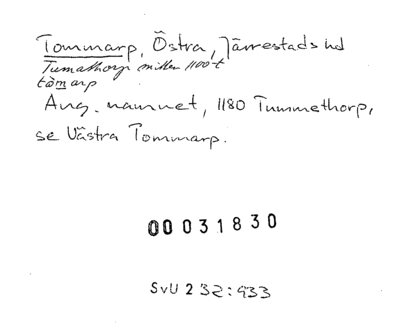 Tommarp, Östra, Järrestads hd
Tumathorp mitten 1100-t
tòmarp
Ang. namnet, 1180 Tummethorp,
se Västra Tommarp.
00031830
SvU 232:933